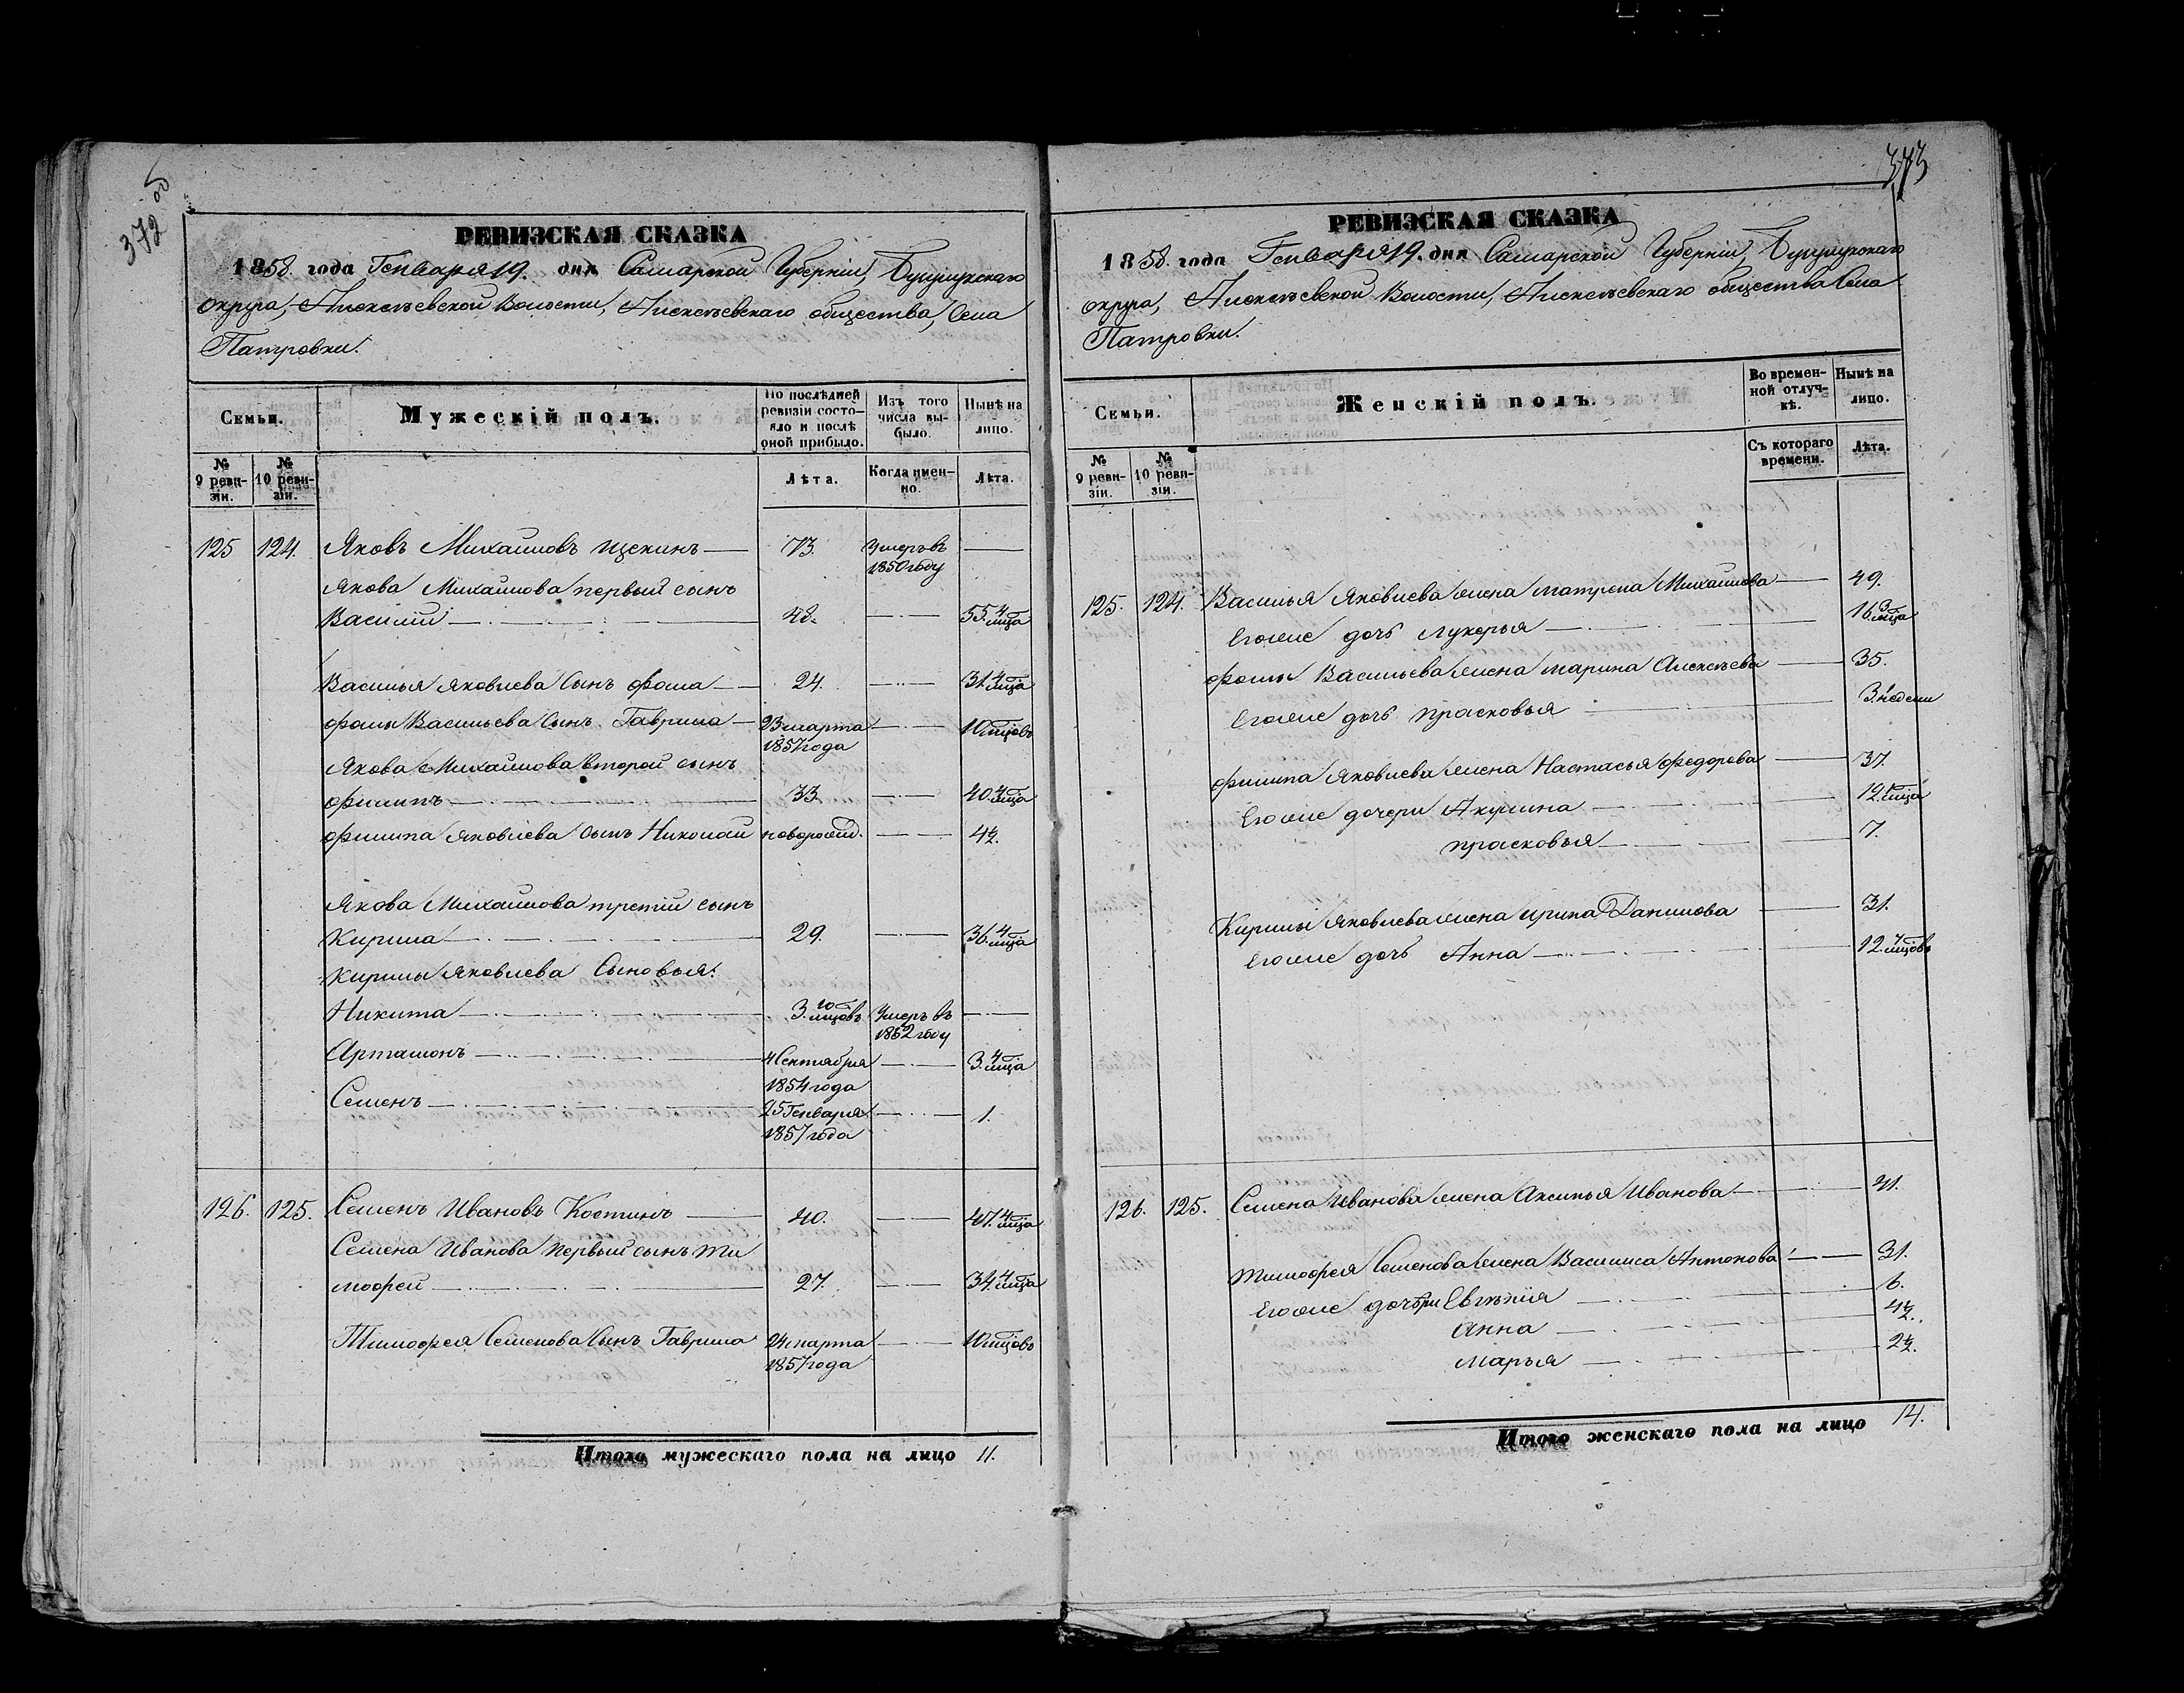 372 об
РЕВИЗСКАЯ СКАЗКА
1858. года Генваря 19. дня Самарской Губерніи, Бузулукскаго
округа, Алексѣевской Волости, Алексѣевскаго общества, Села
Патровки.
Семьи.
Мужескій полъ.
По послѣдней ревизіи состояло и послѣ оной прибыло.
Изъ того числа выбыло.
Нынѣ на лицо.
№ 9 ревизіи.
№ 10 ревизіи.
Лѣта.
Когда именно.
Лѣта.
125 124. Яковъ Михайловъ Щекинъ 73. Умеръ въ 1850 году
Якова Михайлова первый сынъ
Василій 48. 55. 4 мѣца
Василья Яковлева Сынъ Фома 24. 31. 4 мѣца
Фомы Васильева Сынъ Гаврила 23 марта 1857 года 10 мѣцовъ
Якова Михайлова второй сынъ
Филипъ 33. 40. 4 мѣца
Филипа Яковлева Сынъ Николай новорожд. 4½.
Якова Михайлова третій сынъ
Кирила 29. 36. 4 мѣца
Кирилы Яковлева Сыновья:
Никита 3. 10 мѣцовъ Умеръ въ 1852 году
Арташонъ 4 Сентября 1854 года 3. 4 мѣца
Семенъ 25 Генваря 1857 года 1.
126. 125. Семенъ Ивановъ Костинъ 40. 47. 4 мѣца
Семена Иванова первый сынъ Ти
мофей 27. 34. 4 мѣца
Тимофея Семенова Сынъ Гаврила 24 марта 1857 года 10 мѣцовъ
Итого мужескаго пола на лицо 11.
373
РЕВИЗСКАЯ СКАЗКА
1858. года Генваря 19. дня Самарской Губерніи, Бузулукскаго
округа, Алексѣевской Волости, Алексѣевскаго общества Села
Патровки.
Семьи.
Женскій полъ.
Во временной отлучкѣ.
Нынѣ на лицо.
№ 9 ревизіи.
№ 10 ревизіи.
Съ котораго времени.
Лѣта.
125. 124. Василья Яковлева жена Матрена Михайлова 49.
Его же дочь Лукерья 16. 3 мѣца
Фомы Васильева жена Марина Алексѣева 35.
Его же дочь Прасковья 3. недели
Филипа Яковлева жена Настасья Федорова 37.
Его же дочери Акулина 12. мѣца
Прасковья 7.
Кирилы Яковлева жена Ирина Данилова 31.
Его же дочь Анна 12. 7 мѣцовъ
126. 125. Семена Иванова жена Аксинья Иванова 41.
Тимофея Семенова жена Василиса Антонова 31.
Его же дочери Евгѣнія 6.
Анна 4½.
Марья 2½.
Итого женскаго пола на лицо 14.